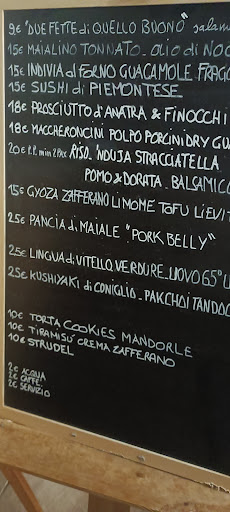 9€ "DUE FETTE di QUELLO BUONO" salam
15€ MAIALINO TONNATO. OLIO di NOC
15€ INDIVIA al FORNO GUACAMOLE. FRAGO
15€ SUSHI di PIEMONTESE
18€ PROSCIUTTO d'ANATRA & FINOCCHI
18€ MACCHERONCINI POLPO PORCINI DRY GUA
20€ P.P. min 2 Pax RISO. 'NDUJA STRACCIATELLA
POMO & DORATA. BALSAMICO
15€ GYOZA ZAFFERANO LIMOME TOFU LIEVIT
25€ PANCIA di MAIALE "PORK BELLY"
25€ LINGUA di VITELLO VERDURE. UOVO 65°
25€ KUSHIYAKI di CONIGLIO. PAKCHOI TANDOO
10€ TORTA COOKIES MANDORLE
10€ TIRAMISÚ CREMA ZAFFERANO
10€ STRUDEL
2€ ACQUA
2€ CAFFE'
2€ SERVIZIO